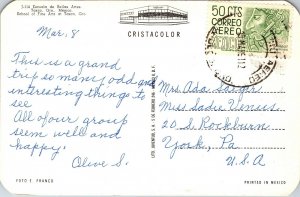 Escuela de Bellas Artes
Taxco, Gro. Mexico.
School of Fine Art at Taxco, Gro
CRISTACOLOR
50 CTS
CORREO
AEREO
MEXICO
Mar. 8
This is a grand
trip so many odd and
interesting things to
see
All of our group
seem well and
happy.
Olive S.
Mrs Ada
Miss Sadie Venses
20 S. Rockburn
York, Pa
U.S.A
FOTO E. FRANCO
PRINTED IN MEXICO